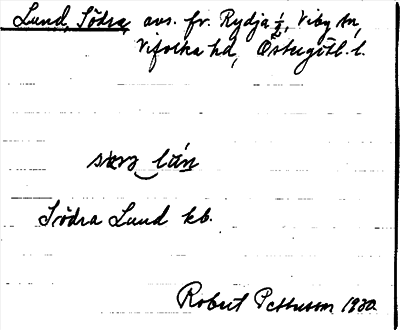 Lund, Södra, avs. fr. Rydja ½, Viby sn,
Vifolka hd, Östergötl. l.
Södra Lund kb.
Robert Pettersson 1930